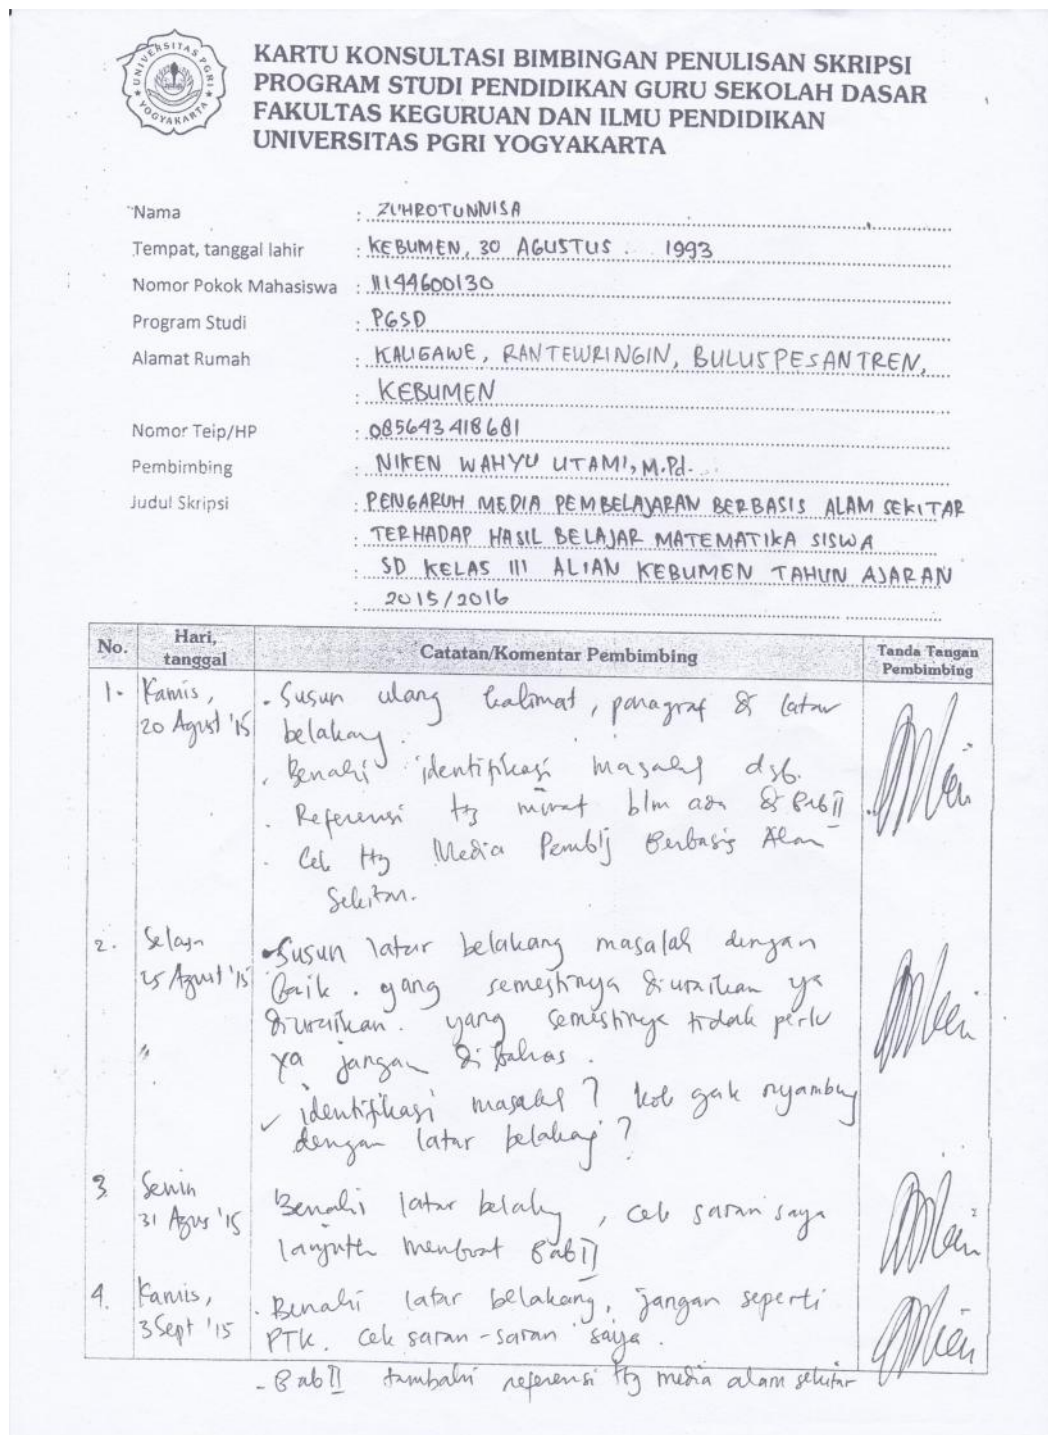 UNIVERSITAS PGRI YOGYAKARTA
KARTU KONSULTASI BIMBINGAN PENULISAN SKRIPSI
PROGRAM STUDI PENDIDIKAN GURU SEKOLAH DASAR
FAKULTAS KEGURUAN DAN ILMU PENDIDIKAN
UNIVERSITAS PGRI YOGYAKARTA
Nama : ZUHROTUNNISA
Tempat, tanggal lahir : KEBUMEN, 30 AGUSTUS 1993
Nomor Pokok Mahasiswa : 11144600130
Program Studi : PGSD
Alamat Rumah : KALIGAWE, RANTEWRINGIN, BULUSPESANTREN,
: KEBUMEN
Nomor Telp/HP : 085643418681
Pembimbing : NIKEN WAHYU UTAMI, M.Pd.
Judul Skripsi : PENGARUH MEDIA PEMBELAJARAN BERBASIS ALAM SEKITAR
: TERHADAP HASIL BELAJAR MATEMATIKA SISWA
: SD KELAS III ALIAN KEBUMEN TAHUN AJARAN
: 2015/2016
No. Hari, tanggal Catatan/Komentar Pembimbing Tanda Tangan Pembimbing
1. Kamis, - Susun ulang kalimat, paragraf & latar
20 Agust '15 belakang.
- Benahi identifikasi masalah dsb.
- Referensi ttg minat blm ada di Bab II
- Cek ttg Media Pemblj Berbasis Alam
Sekitar.
2. Selasa - Susun latar belakang masalah dengan
25 Agust '15 baik. yang semestinya diuraikan ya
diuraikan. yang semestinya tidak perlu
ya jangan dibahas.
✓ identifikasi masalah? kok gak nyambung
dengan latar belakang?
3. Senin Benahi latar belakg, cek saran saya
31 Agus '15 lanjutk membuat Bab II
4. Kamis, - Benahi latar belakang, jangan seperti
3 Sept '15 PTK. cek saran-saran saya.
- Bab II tambahi referensi ttg media alam sekitar